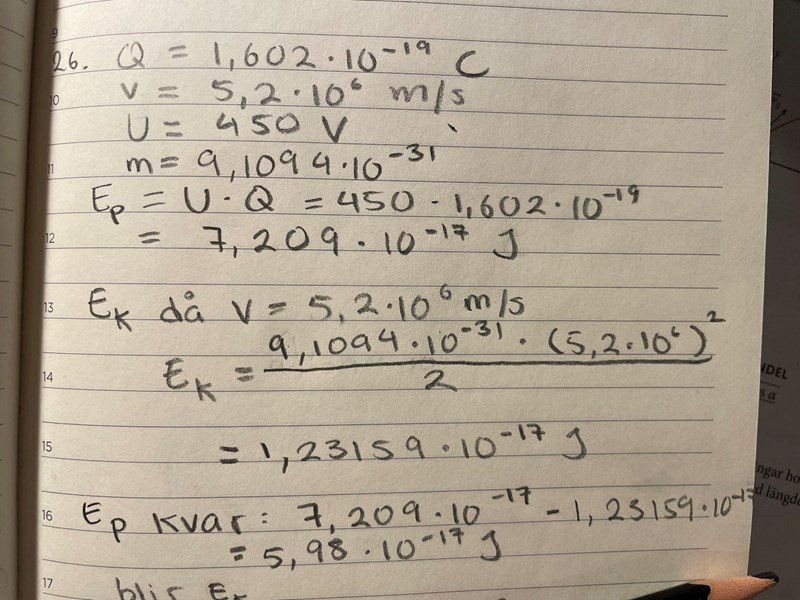 9
26. Q = 1,602·10⁻¹⁹ C
10 v = 5,2·10⁶ m/s
U = 450 V
11 m = 9,1094·10⁻³¹
Ep = U·Q = 450 · 1,602·10⁻¹⁹
12 = 7,209·10⁻¹⁷ J
13 EK då v = 5,2·10⁶ m/s
14 EK = 9,1094·10⁻³¹·(5,2·10⁶)² / 2
15 = 1,23159·10⁻¹⁷ J
16 Ep kvar: 7,209·10⁻¹⁷ - 1,23159·10⁻¹⁷
= 5,98·10⁻¹⁷ J
17 blir Ek
NDEL
s α
ngar ho
d längde